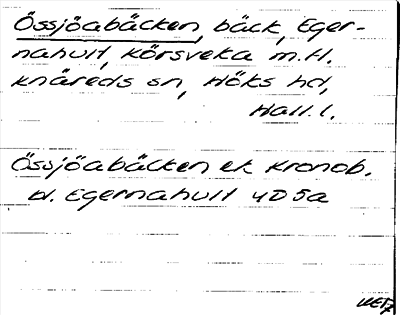 Össjöabäcken, bäck, Eger-
nahult, Körsveka m.fl.
Knäreds sn, Höks hd,
Hall. l.
Össjöabäcken ek Kronob.
bl. Egernahult 4D5a